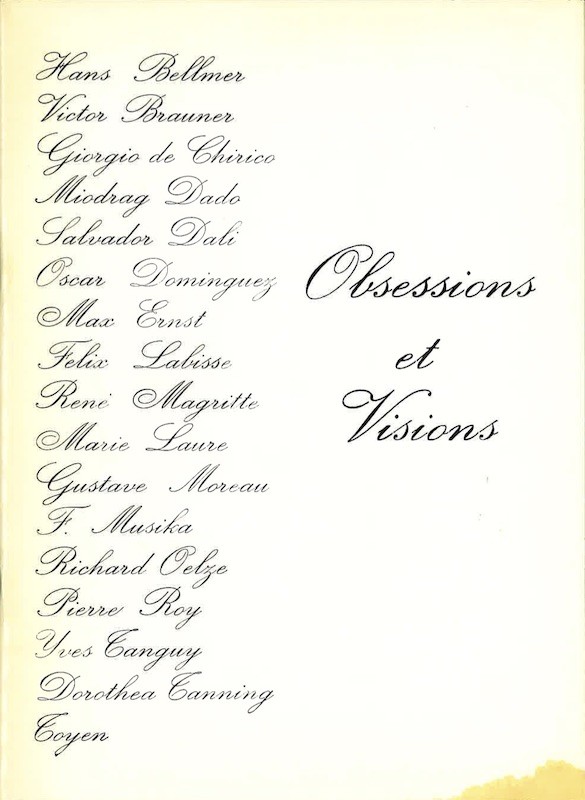 Hans Bellmer
Victor Brauner
Giorgio de Chirico
Miodrag Dado
Salvador Dali
Oscar Dominguez
Max Ernst
Felix Labisse
René Magritte
Marie Laure
Gustave Moreau
F. Musika
Richard Oelze
Pierre Roy
Yves Tanguy
Dorothea Tanning
Toyen
Obsessions
et
Visions